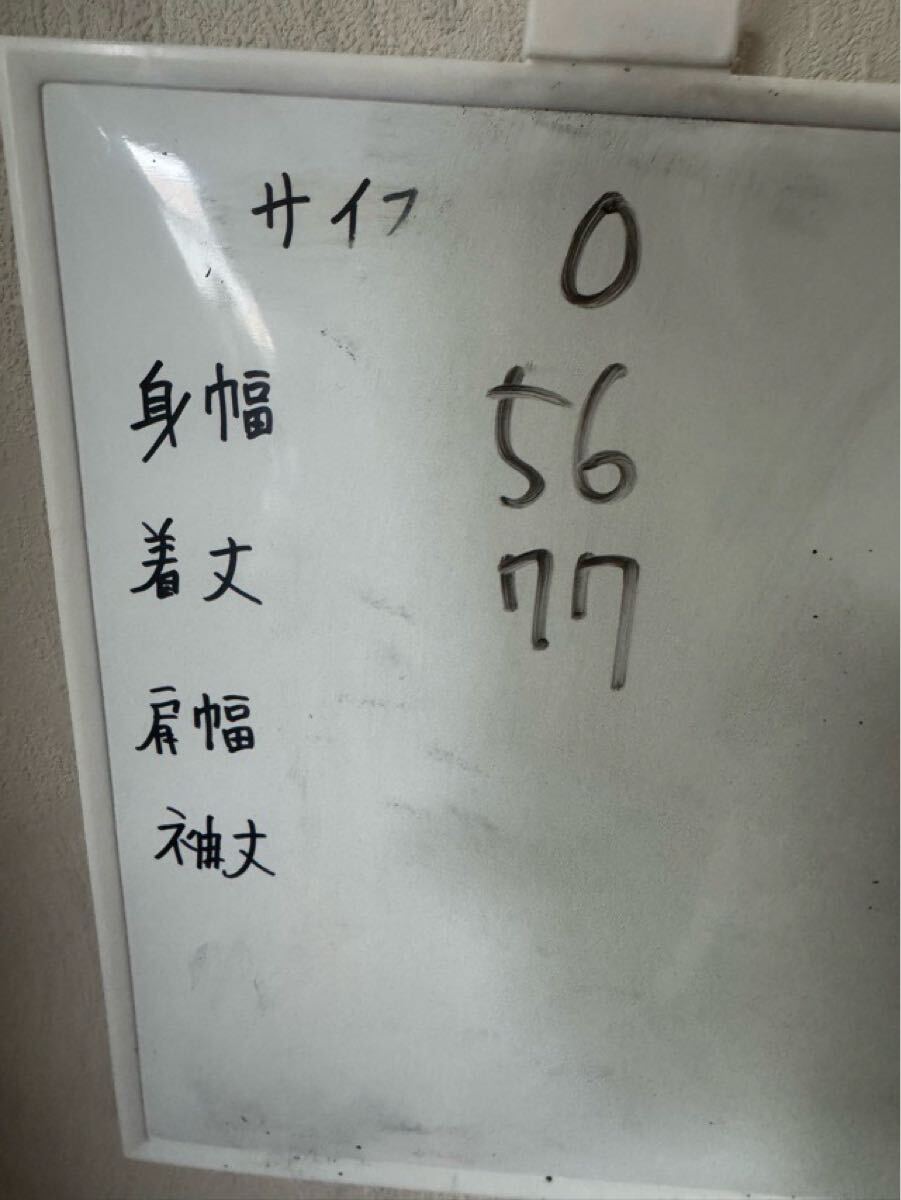 サイフ 0
身幅 56
着丈 77
肩幅
袖丈